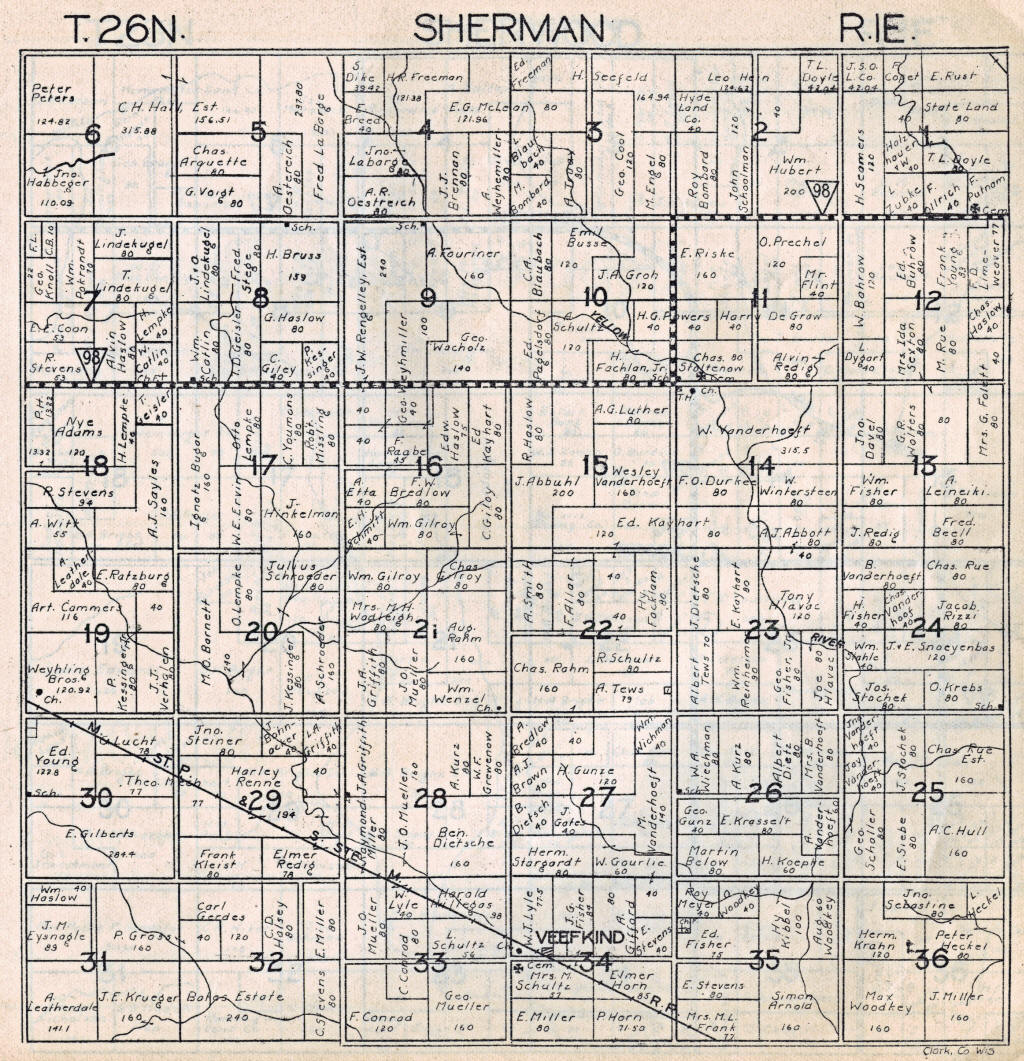 T. 26N. SHERMAN R.IE.
Peter Peters 124.82
C.H. Hall, Est 315.88
6
Jno. Habbeger 110.09
156.51
5
237.80
Chas Arquette 80
G. Voigt 80
A. Oestereich 80
Fred. LaBarge
S Dike 39.42
H.R. Freeman 121.38
Ed. Freeman
E. Breed 40
E.G. McLean 121.96
80
4
Jno. Labarge 80
A.R. Oestreich 80
J.J. Brennan 80
A. Weyhemiller 80
L. Blaubach 40
M. Bombard 40
H. Seefeld 164.94
3
Geo. Cool 120
M. Engel 80
Leo Hein 124.62
Hyde Land Co. 40
120
40
2
Roy Bombard 80
John Schoolman
T.L. Doyle 42.04
Wm. Hubert 200
98
J.S.O. L. Co. 42.04
E. Rust
State Land 80
1
H. Seamers 120
T.L. Doyle 80
L. Zubke 40
F. Dilrich 40
F. Putnam
Cem.
F.L. C.B. 10
Geo. Knoll 22
Wm. Pokrandt 70
J. Lindekugel 80
T. Lindekugel 80
7
E.E. Coon 53
R. Stevens 53
98
Alvin Haslow 80
H. Lempke 40
W. Catlin 40
Ch.
J. & O. Lindekugel 80
Fred. Stege 80
Sch.
H. Bruss 159
8
G. Haslow 80
Wm. Catlin 80
H.D. Geisler 80
C. Giley 40
P. Kessinger 40
Sch.
Sch.
J.W. Rengelley, Est 240
A. Touriner 160
9
Weyhmiller
100
Geo. Wacholz 140
C.A. Blaubach 80
Emil Busse 120
J.A. Groh 120
10
YELLOW
A. Schultz 120
Ed. Pagelsdorf 80
H. Fachlan, Jr. 80
Sch.
E. Riske 160
O. Prechel 120
Mr. Flint 40
11
H.G. Powers 40 40
Harry De Graw 40 80
Chas. 80 Stoltenow
Cem.
Alvin Redig 80
W. Bahrow 120
Ed. Buhrow 80
Frank Young 83
F.D. Limeweaver 77
12
L. Dygart 40
Mrs. Ida Mexton 80
M. Rue 80
Chas. Haslow 40
40
P.H. 13.22
13.32
Nye Adams 120
H. Lempke 40
T. Geisler 40
18
R. Stevens 94
A. Witt 55
A.J. Sayles 160
Ignatz Bugar 160
Otto Lempke 80
17
C. Youmans 80
Robt. Missling 80
W.E. Ervin 80
J. Hinkelman 160
40
40
Geo.
F. Raabe 45
Edw. Haslow 75
Ed Kayhart 80
16
A. Etta 40
F.W. Bredlow 80
E.H. Schmitt 40
Wm. Gilroy 80
C. Gilroy 80
R. Haslow 80
A.G. Luther 80
15
J. Abbuhl 200
Wesley Vanderhoeft 160
Ed. Kayhart 120
T.H.
Ch.
W. Vanderhoeft 315.5
14
F.O. Durkee 80
W. Wintersteen 80
A.J. Abbott 80
Jno. Dayel 80
G.R. Wyers 80
80
Mrs. G. Folett 80
13
Wm. Fisher 80
A. Leineiki 80
J. Redig 80
Fred. Beell 80
A. Leatherdale 40
E. Ratzburg 80
Art. Cammers 116
40
19
Weyhling Bros. 120.92
Ch.
P. Kessinger 80
J.J. Verhalen 80
M.O. Barnett 240
O. Lempke 80
Julius Schroader 80
20
J. Kessinger 80
A. Schroeder 160
Wm. Gilroy 80
Chas Gilroy 80
Mrs. M.H. Wadleigh 80
21
Aug. Rahm 160
J.A. Griffith 80
J.O. Mueller 80
Wm. Wenzel
Ch.
A. Smith 80
F. Allar 80
40
Hy. Focklam 80
22
Chas. Rahm 160
R. Schultz 80
A. Tews 79
J. Dietsche 80
E. Kayhart 80
40
Tony Hlavac 120
23
RIVER
Albert Tews 120
Wm. Reinheimer 80
Geo. Fisher, Jr. 80
Joe Hlavac 80
B. Vanderhoeft 80
Chas. Rue 80
H. Fisher 40
Chas. Vanderhoef 40
Jacob Rizzi 80
24
Wm. Stahle 40
J. & E. Snoeyenbos 120
Jos. Stachek 80
O. Krebs 80
Sch.
M. ST. P. & S. STE. M. R.R.
Ed. Young 122.8
Sch.
G. Lucht 78
Theo. Mech 77
30
E. Gilberts 284.4
Jno. Steiner 80
J. Bohnacker 40
L.A. Griffith 40
Harley Renne 194
77
40
29
Frank Kleist 80
Elmer Redig 78
J.A. Griffith 80
J.O. Mueller 160
A. Kurz 80
W.F. Grewenow 80
28
Miller 80
Ben. Dietsche 160
A. Bredlow 40
40
Wm. Wichman 40
A.J. Brown 40
H. Gunze 120
27
B. Dietsch 40
J. Gates 40
M. Vanderhoeft 140
Herm. Stargardt 80
W. Gourlie 80
W.A. Wiechman 80
A. Kurz 80
Albert Dietz 80
Mrs. B. Vanderhoeft 80
Sch.
26
Geo. Gunz 40
E. Krasselt 80
A. Vanderhoefe 60
Martin Below 80
H. Koepfe 80
Jno. Vanderhoeft 40
Jay Vanderhoeft 40
J. Stachek 80
Chas. Rue Est. 160
25
Geo. Schaller 80
E. Siebe 80
A.C. Hull 160
Wm. Haslow 40
J.M. Eysnogle 89
P. Gross 160
31
A. Leatherdale 141.1
J.E. Krueger 160
Carl Gerdes
40 120
C.D. Halsey 80
E. Miller 80
32
Bates Estate 240
C. Stevens 80
J.O. Mueller 80
W. Lyle 40
Harold Hiltegas 98
33
C. Conrad 80
L. Schultz 56
Ch.
F. Conrad 120
Geo. Mueller 160
W.J. Lyle 77.5
J.G. Fisher 84
80
40
Gifford
E. Stevens 40
VEEFKIND
34
Cem.
Mrs. M. Schultz 53
Elmer Horn 85
E. Miller 80
P. Horn 71.50
Roy Meyer 40
O. Woodkey 40
Hy. Kibbel 100
Aug. 60 Woodkey
Ed. Fisher 75
35
E. Stevens 80
Mrs. M.L. Frank 77
Simon Arnold 160
Jno. Sebastine 80
L. Heckel
Herm. Krahn 120
Peter Heckel 80
36
Max Woodkey 160
J. Miller 160
Clark, Co Wis